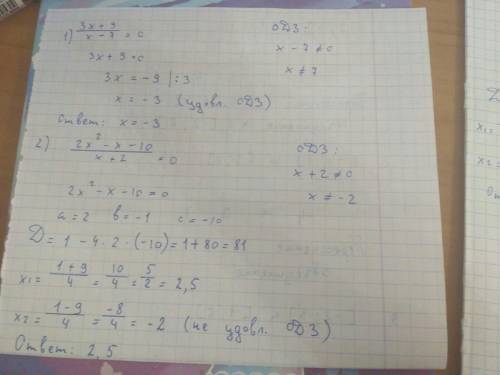 1) (3x + 9)/(x - 7) = 0 ОДЗ:
3x + 9 = 0 x - 7 ≠ 0
3x = -9 | :3 x ≠ 7
x = -3 (удовл. ОДЗ)
Ответ: x = -3
2) (2x² - x - 10)/(x + 2) = 0 ОДЗ:
x + 2 ≠ 0
2x² - x - 10 = 0 x ≠ -2
a = 2 b = -1 c = -10
D = 1 - 4 · 2 · (-10) = 1 + 80 = 81
x1 = (1 + 9)/4 = 10/4 = 5/2 = 2,5
x2 = (1 - 9)/4 = -8/4 = -2 (не удовл. ОДЗ)
Ответ: 2,5